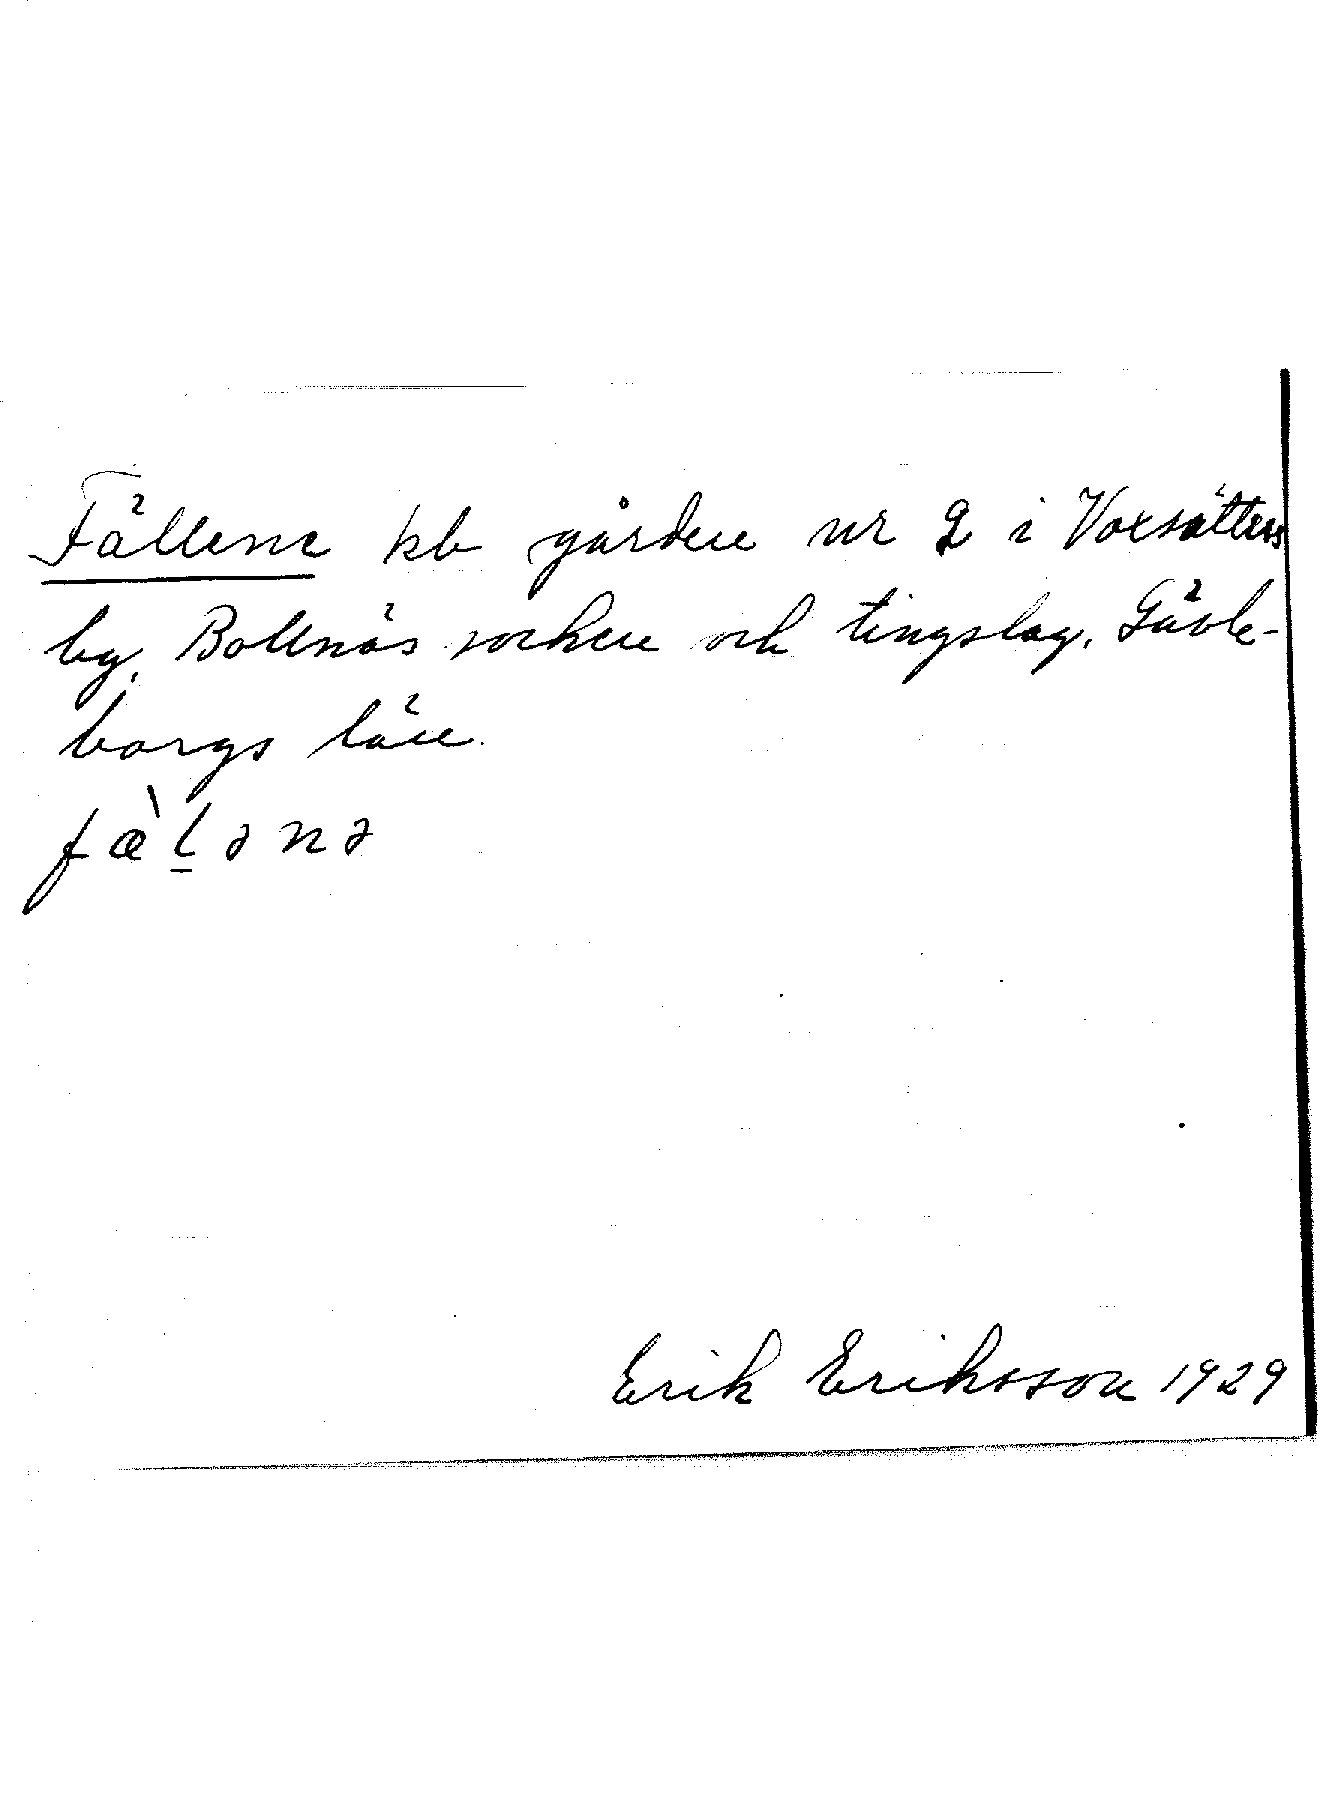 Fällene kb gården nr 2 i Voxsätters
by, Bollnäs socken och tingslag, Gävle-
borgs län.
fæ̀l̲ənə
Erik Eriksson 1929